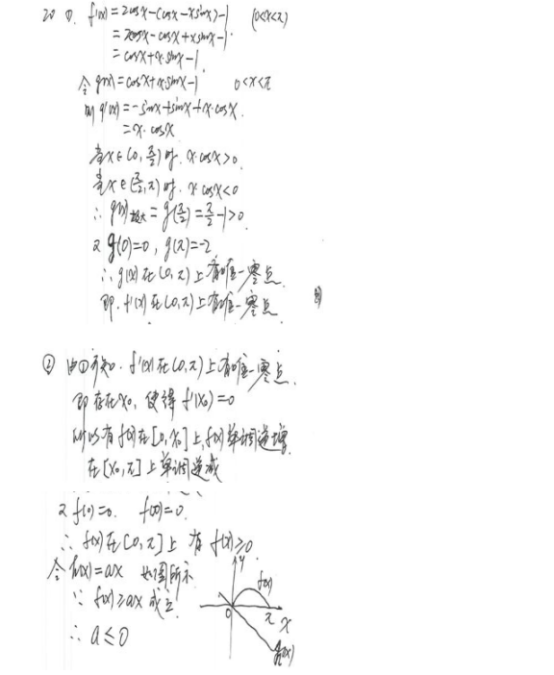 20 ①. f'(x)=2cosx-(cosx-x·sinx)-1 (0<x<π)
=2cosx-cosx+xsinx-1.
=cosx+x·sinx-1.
令g(x)=cosx+x·sinx-1 0<x<π
则g'(x)=-sinx+sinx+x·cosx.
=x·cosx
当x∈(0, π/2)时. x·cosx>0.
当x∈(π/2, π)时. x·cosx<0
∴ g(x)极大=g(π/2)=π/2-1>0
又g(0)=0, g(π)=-2
∴g(x)在(0,π)上有唯一零点.
即. f'(x)在(0,π)上有唯一零点.
② 由①可知. f'(x)在(0,π)上有唯一零点.
即存在x₀, 使得f'(x₀)=0
所以有f(x)在[0,x₀]上, f(x)单调递增.
在[x₀,π]上单调递减
又f(0)=0. f(π)=0.
∴ f(x)在[0,π]上 有f(x)≥0.
令h(x)=ax 如图所示
∵ f(x)≥ax成立
∴ a≤0
y
f(x)
0
π
x